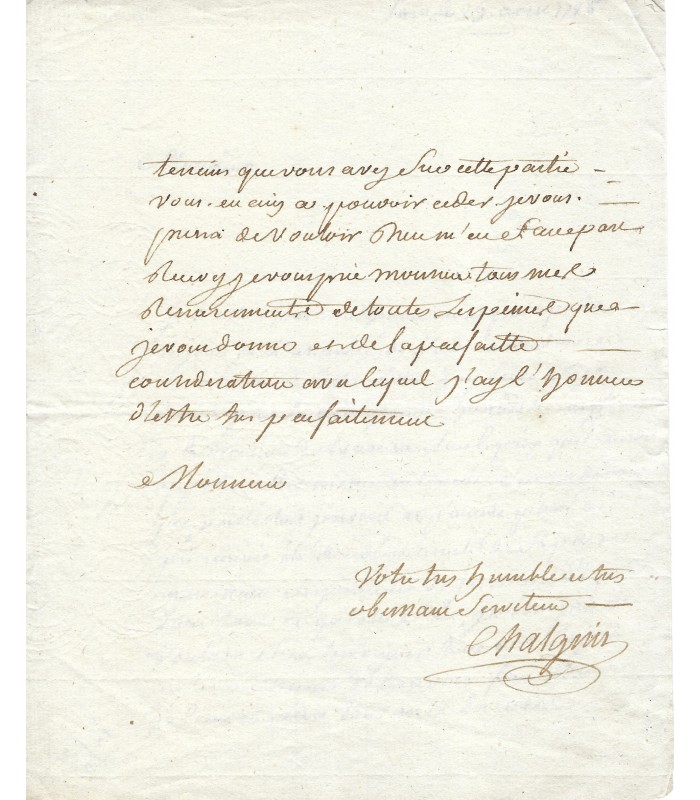 terrains que vous avez Sur cette partie –
vous en ainy a pouvoir ceder je vous
prirai de Vouloir Bien m'en et faire part
Recevez je vous prie monsieur tous mes
Remerciments de toutes Les peines que
je vous donne et de la parfaitte
consideration avec lequel j'ay l'honneur
d'estre tres parfaitement
Monsieur
Votre tres humble et tres
obeissant Serviteur –
Chalgrin